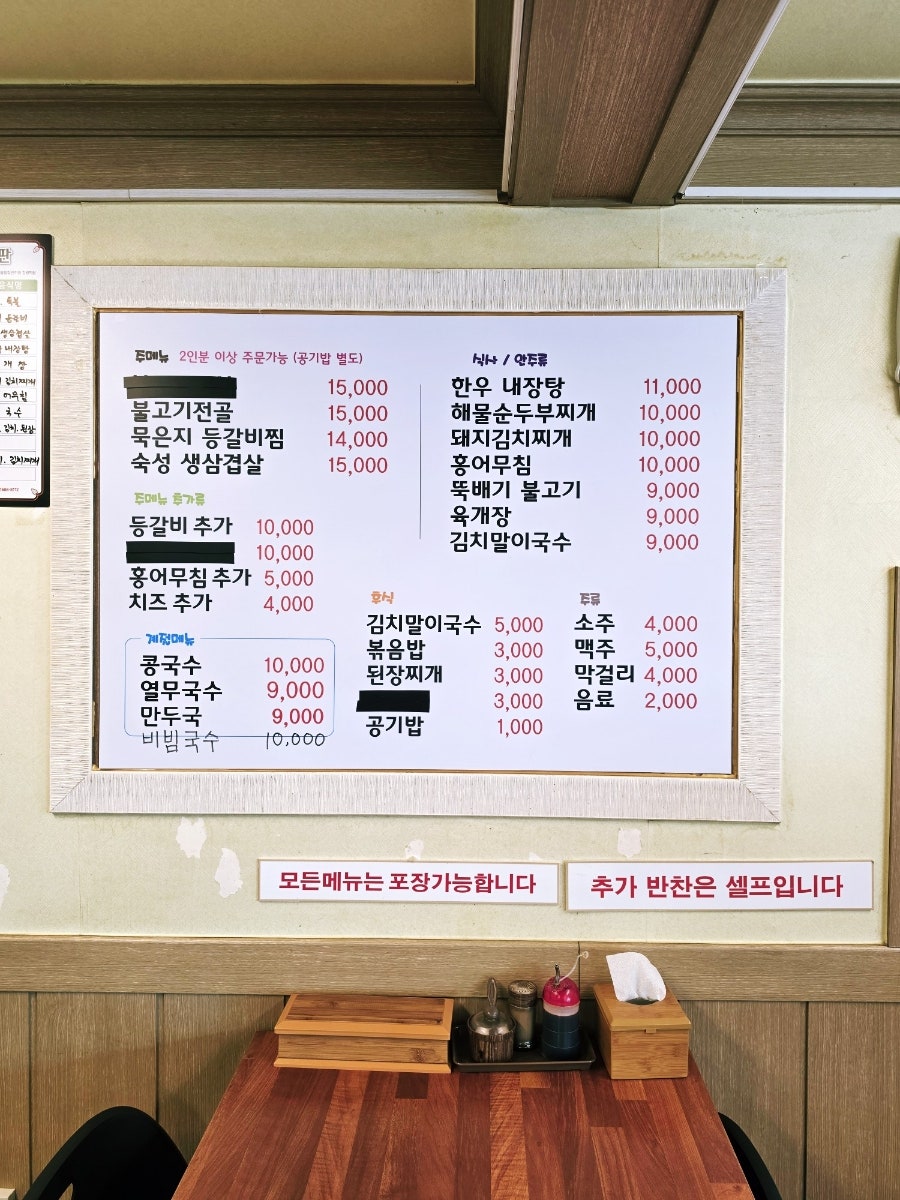 주메뉴 2인분 이상 주문가능 (공기밥 별도)
15,000
불고기전골 15,000
묵은지 등갈비찜 14,000
숙성 생삼겹살 15,000
주메뉴 추가류
등갈비 추가 10,000
10,000
홍어무침 추가 5,000
치즈 추가 4,000
계절메뉴
콩국수 10,000
열무국수 9,000
만두국 9,000
비빔국수 10,000
식사 / 안주류
한우 내장탕 11,000
해물순두부찌개 10,000
돼지김치찌개 10,000
홍어무침 10,000
뚝배기 불고기 9,000
육개장 9,000
김치말이국수 9,000
후식
김치말이국수 5,000
볶음밥 3,000
된장찌개 3,000
3,000
공기밥 1,000
주류
소주 4,000
맥주 5,000
막걸리 4,000
음료 2,000
모든메뉴는 포장가능합니다
추가 반찬은 셀프입니다